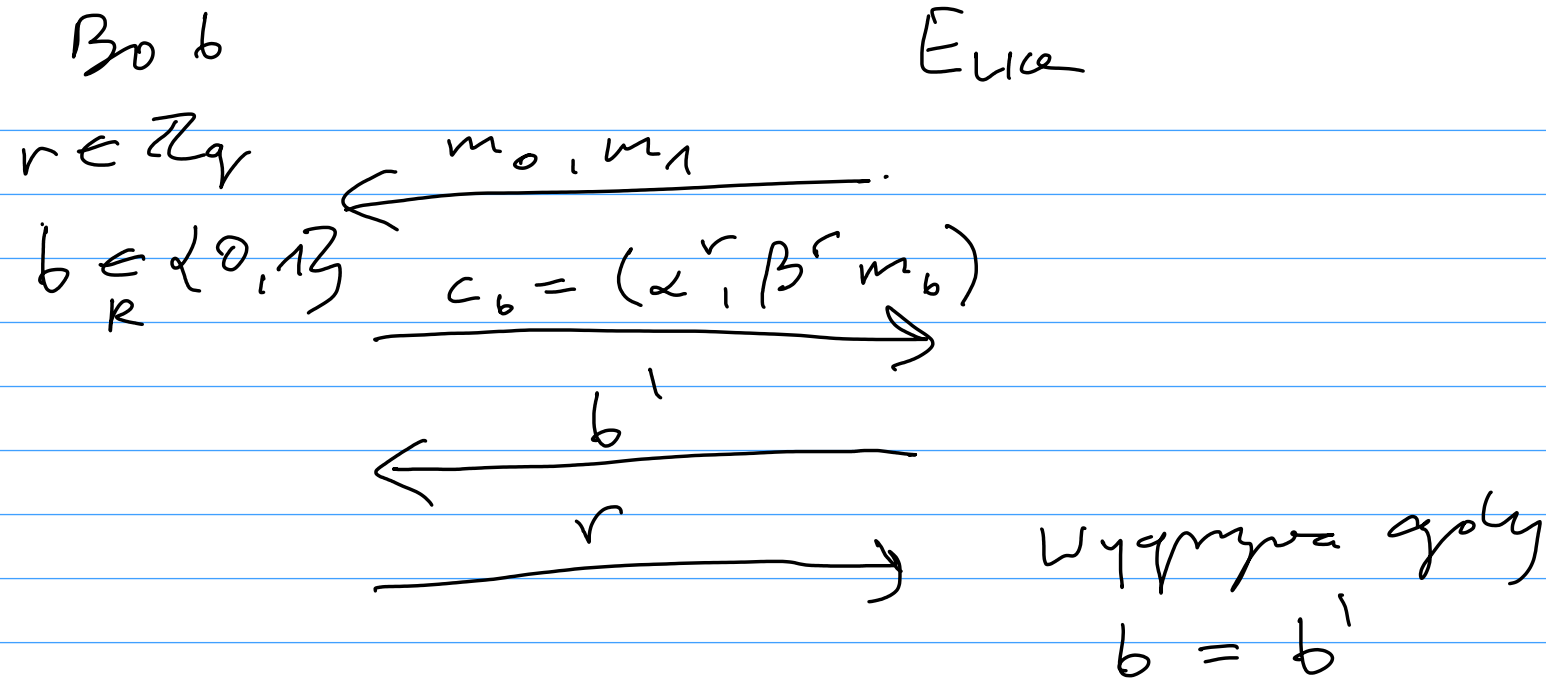 Bob Ewa
r ∈ ℤq m₀, m₁
b ∈R {0,1} c_b = (α^r, β^r m_b)
b'
r
wygrywa gdy
b = b'